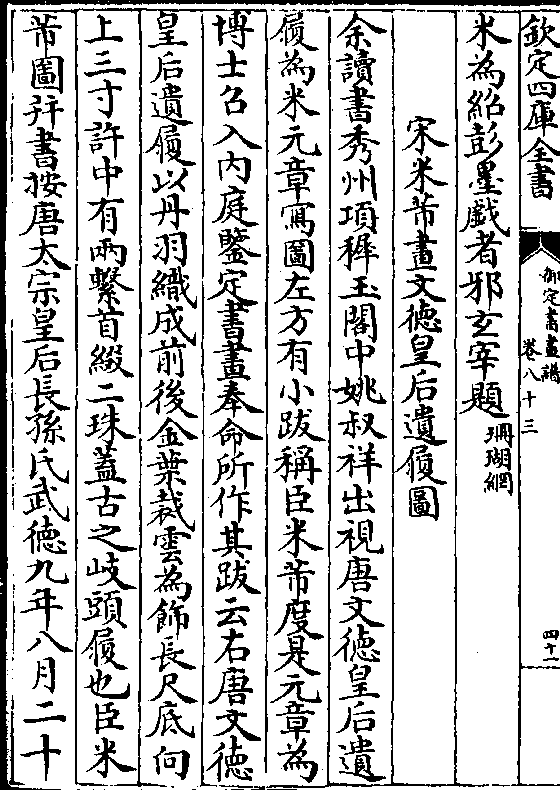 欽定四庫全書
御定書畫譜
卷八十三
四十一
米為紹彭墨戲者邪玄宰題珊瑚網
宋米芾畫文德皇后遺履圖
余讀書秀州項穉玉閣中姚叔祥出視唐文德皇后遺
履為米元章寫圖左方有小跋稱臣米芾度是元章為
博士召入內庭鑒定書畫奉命所作其跋云右唐文德
皇后遺履以丹羽織成前後金葉裁雲為飾長尺底向
上三寸許中有兩繫首綴二珠蓋古之岐頭履也臣米
芾圖并書按唐太宗皇后長孫氏武德九年八月二十